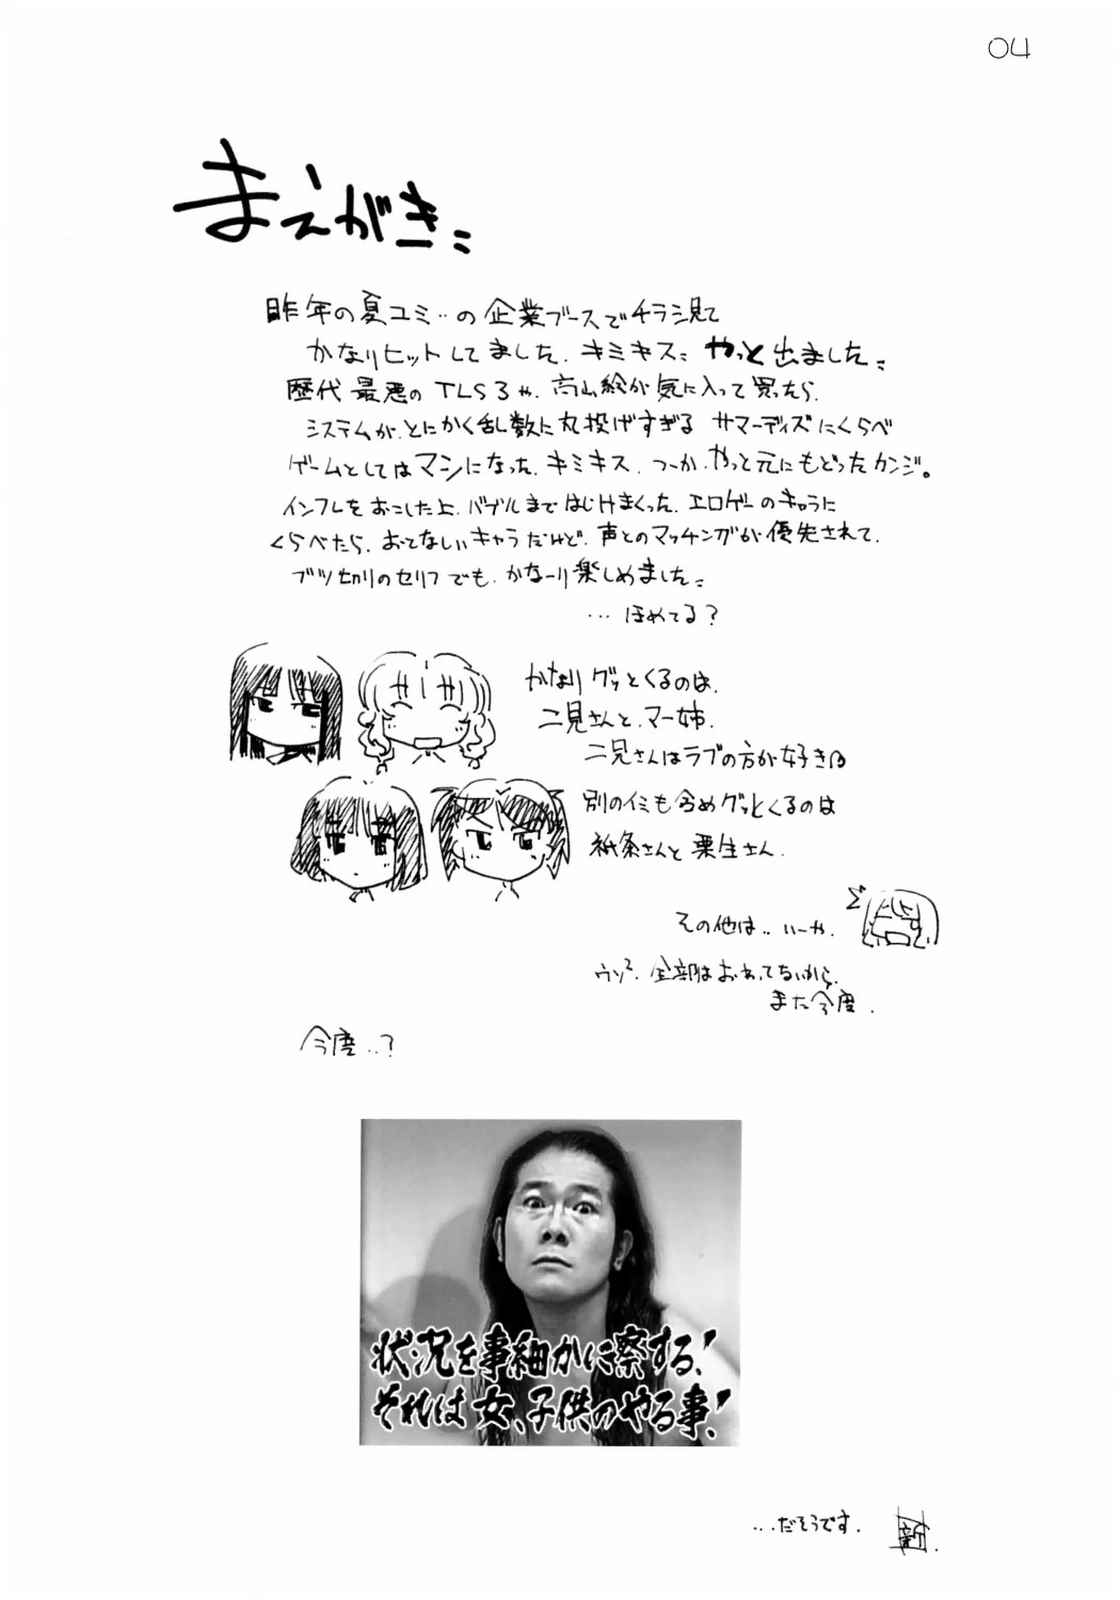 04
まえがき
昨年の夏コミ‥の企業ブースでチラシ見て
かなりヒットしてました、キミキス、やっと出ました
歴代最悪のTLS3や、高山絵が気に入って買ったら、
システムが、とにかく乱数に丸投げすぎるサマーデイズにくらべ
ゲームとしてはマシになった、キミキス、つーか、やっと元にもどったカンジ。
インフレをおこした上、バブルまではじけまくった、エロゲーのキャラに
くらべたら、おとなしいキャラだけど、声とのマッチングが優先されて、
ブツ切りのセリフでも、かなーり楽しめました
…ほめてる?
かなりグッとくるのは、
二見さんと、マー姉、
二見さんはラブの方が好き
別のイミも含めグッとくるのは
祇条さんと栗生さん、
その他は‥いーや、
ウソ²、全部はおわってないから、
また今度、
今度‥?
状況を事細かに察する!
それは女、子供のやる事!
…だそうです、
新